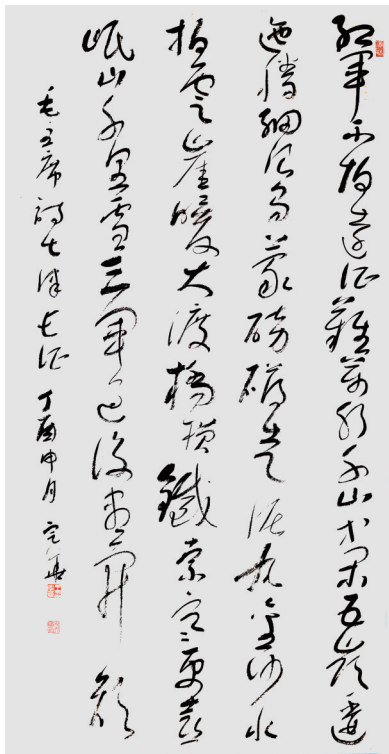 紅軍不怕遠征難萬水千山只等閑五嶺逶
迤騰細浪烏蒙磅礴走泥丸金沙水
拍雲崖暖大渡橋横鐵索寒更喜
岷山千里雪三軍過後盡開顏
毛主席詩七律長征 丁酉申月